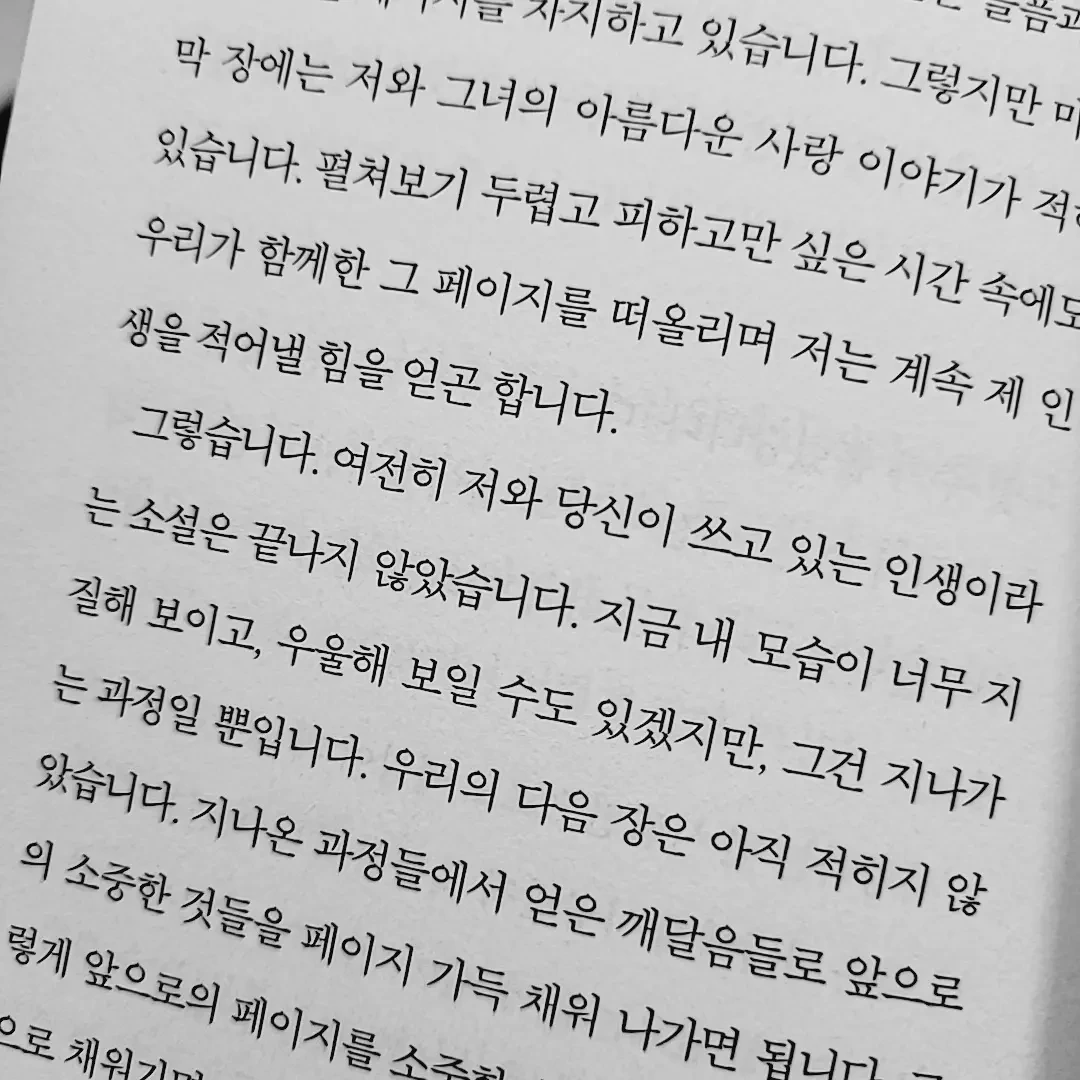 차지하고 있습니다. 그렇지만 마
막 장에는 저와 그녀의 아름다운 사랑 이야기가
있습니다. 펼쳐보기 두렵고 피하고만 싶은 시간 속에도
우리가 함께한 그 페이지를 떠올리며 저는 계속 제 인
생을 적어낼 힘을 얻곤 합니다.
그렇습니다. 여전히 저와 당신이 쓰고 있는 인생이라
는 소설은 끝나지 않았습니다. 지금 내 모습이 너무 지
질해 보이고, 우울해 보일 수도 있겠지만, 그건 지나가
는 과정일 뿐입니다. 우리의 다음 장은 아직 적히지 않
았습니다. 지나온 과정들에서 얻은 깨달음들로 앞으로
의 소중한 것들을 페이지 가득 채워 나가면 됩니다.
렇게 앞으로의 페이지를
으로